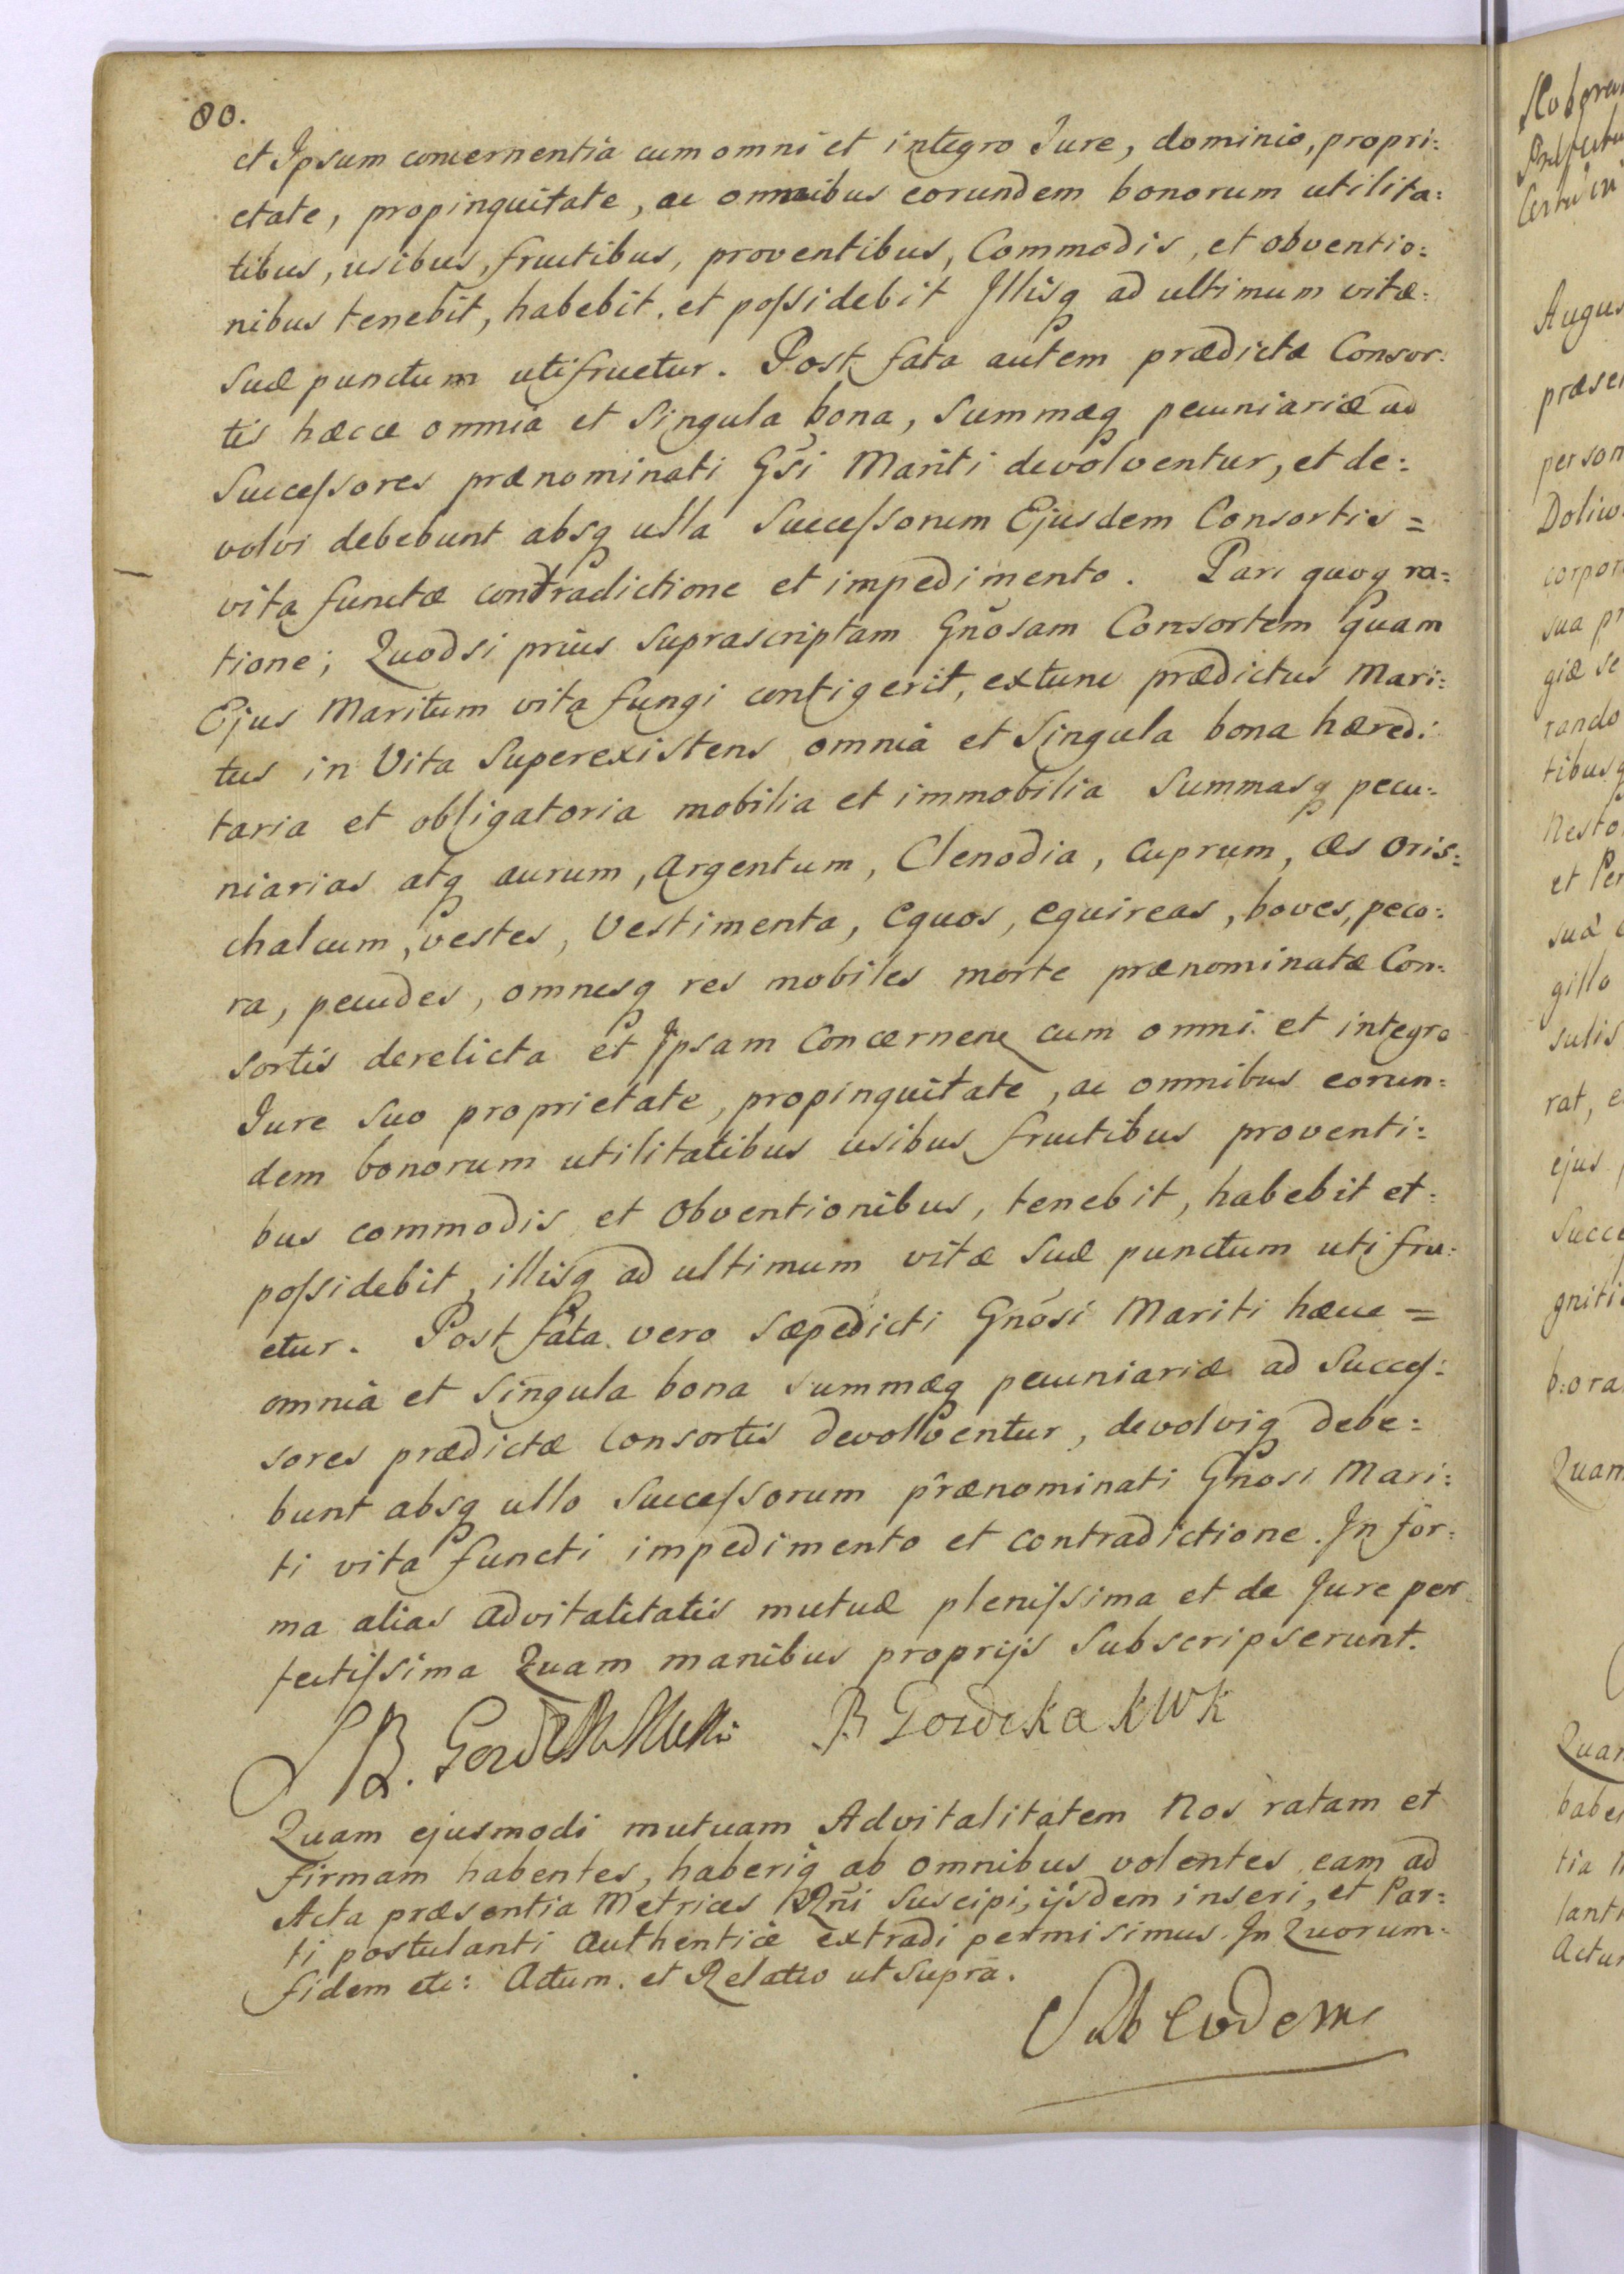 80.
et Ipsum concernentia cum omni et integro Jure, dominio, propri:
etate, propinquitate, ac omnibus eorundem bonorum utilita:
tibus, usibus, fructibus, proventibus, Commodis, et obventio:
nibus tenebit, habebit, et possidebit Illisq ad ultimum vitæ:
suæ punctum utifruetur. Post fata autem prædictæ Consor:
tis hæcce omnia et singula bona, summæq pecuniariæ ad
Successores prænominati Gsi Mariti devolventur, et de:
volvi debebunt absq ulla Successorum Ejusdem Consortis =
vita functæ contradictione et impedimento. Pari quoq ra:
tione; Quodsi prius suprascriptam Gnosam Consortem quam
Ejus Maritum vita fungi contigerit, extunc prædictus Mari:
tus in Vita Superexistens omnia et singula bona hæredi:
taria et obligatoria mobilia et immobilia Summasq pecu:
niarias atq aurum, Argentum, Clenodia, Cuprum, æs oris:
chalcum, vestes, Vestimenta, Equos, equireas, boves, peco:
ra, pecudes, omnesq res mobiles morte prænominatæ Con:
sortis derelicta et Ipsam Concernen cum omni et integro
Jure suo proprietate, propinquitate, ac omnibus eorun:
dem bonorum utilitatibus usibus fructibus proventi:
bus commodis et Obventionibus, tenebit, habebit et:
possidebit, illisq ad ultimum vitæ suæ punctum utifru:
etur. Post fata vero sæpedicti Gnosi Mariti hæcce =
omnia et singula bona summæq pecuniariæ ad Succes:
sores prædictæ Consortis devolventur, devolviq debe:
bunt absq ullo Successorum prænominati Gnosi Mari:
ti vita functi impedimento et contradictione. In for:
ma alias Advitalitatis mutuæ plenissima et de Jure per
fectissima Quam manibus proprijs Subscripserunt.
B Gozdcka KWK
Quam ejusmodi mutuam Advitalitatem Nos ratam et
firmam habentes, haberiq ab omnibus volentes eam ad
Acta præsentia Metrices Rñi suscipi, ijsdem inseri, et Par:
ti postulanti Authentice extradi permisimus. In Quorum
fidem etc: Actum et Relatio ut supra.
Sub Eodem
Augus
person
Doliw
corpor
sua pr
giæ se
rando
tibusq
et Per
suæ
gillo
sulis
rat, e
ejus
Succe
gniti
Quam
Quam
tia
lanti
Actum